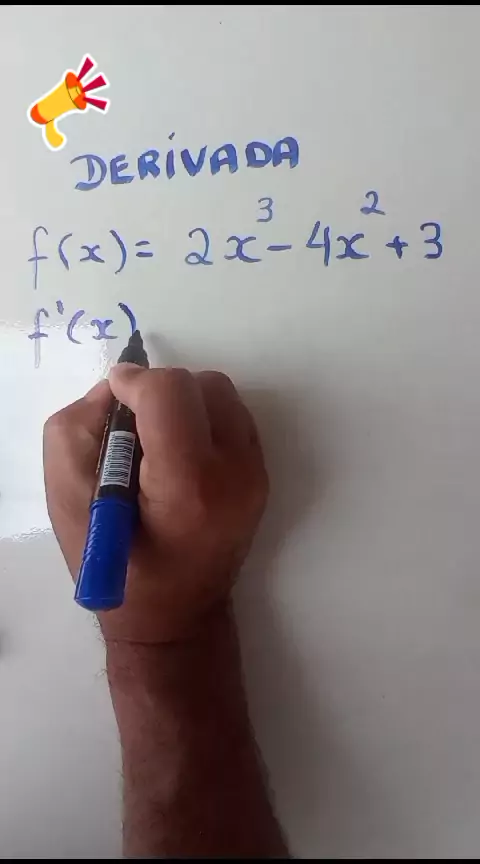 DERIVADA
f(x) = 2x³ - 4x² + 3
f'(x)